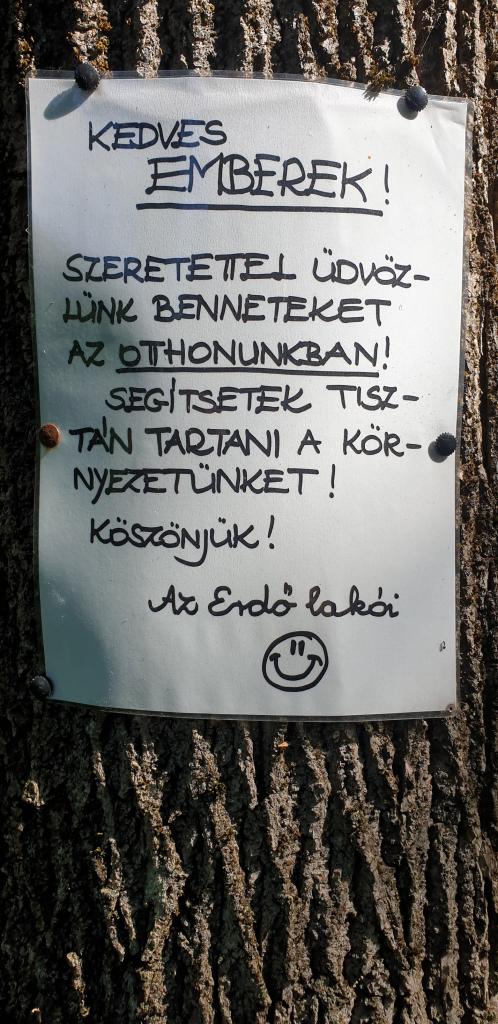 KEDVES
EMBEREK!
SZERETETTEL ÜDVÖZ-
LÜNK BENNETEKET
AZ OTTHONUNKBAN!
SEGÍTSETEK TISZ-
TÁN TARTANI A KÖR-
NYEZETÜNKET!
KÖSZÖNJÜK!
Az Erdő lakói